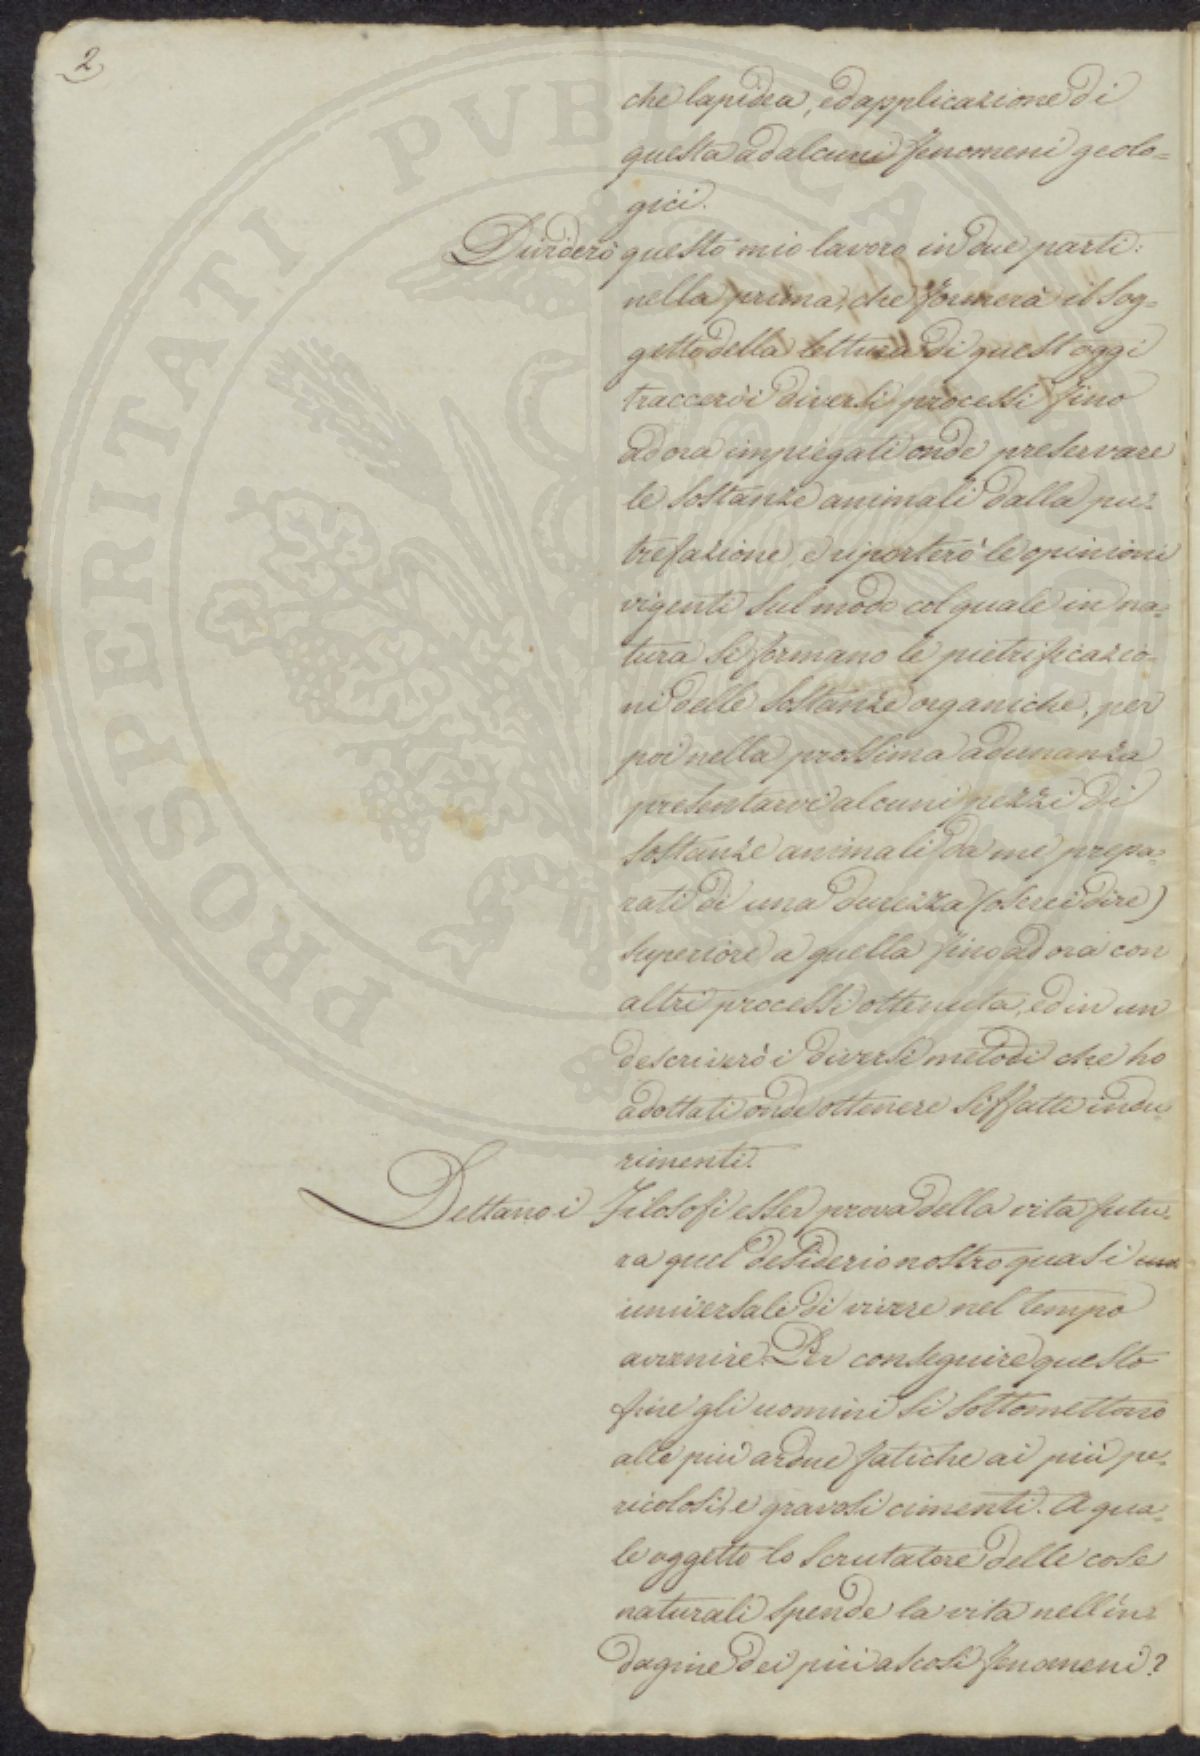 2
che lapidea, ed applicazione di
questa ad alcuni fenomeni geolo=
gici.
Dividerò questo mio lavoro in due parti:
nella prima, che formerà il sog=
getto della lettura di quest'oggi
traccerò i diversi processi fino
ad ora impiegati onde preservare
le sostanze animali dalla pu=
trefazione, e riporterò le opinioni
vigenti sul modo col quale in na=
tura si formano le pietrificazio=
ni delle sostanze organiche, per
poi nella prossima adunanza
presentarvi alcuni pezzi di
sostanze animali da me prepa=
rati di una durezza (oserei dire)
superiore a quella fino ad ora con
altri processi ottenuta, ed in un
descriverò i diversi metodi che ho
adottati onde ottenere siffatti indu=
rimenti.
Dettano i Filosofi esser prova della vita futu=
ra quel desiderio nostro quasi un
universale di vivere nel tempo
avvenire. Per conseguire questo
fine gli uomini si sottomettono
alle più ardue fatiche ai più pe=
ricolosi, e gravosi cimenti. A qua=
le oggetto lo scrutatore delle cose
naturali spende la vita nell'in=
dagine dei più ascosi fenomeni?
PROSPERITATI PVBLICAE